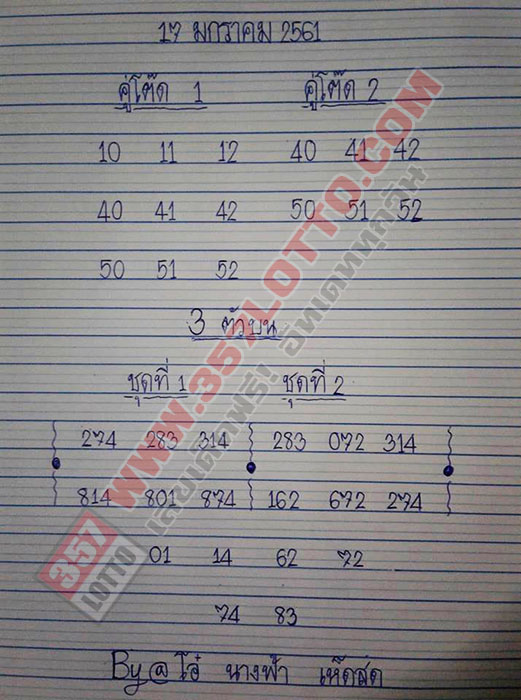 17 มกราคม 2561
คู่โต๊ด 1 คู่โต๊ด 2
10 11 12 40 41 42
40 41 42 50 51 52
50 51 52
3 ตัวบน
ชุดที่ 1 ชุดที่ 2
274 283 314 283 072 314
814 801 874 162 672 274
01 14 62 72
74 83
By@โอ๋ นางฟ้า เห็ดสด
357 LOTTO
WWW.357LOTTO.COM